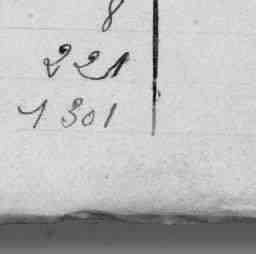 8
221
1301